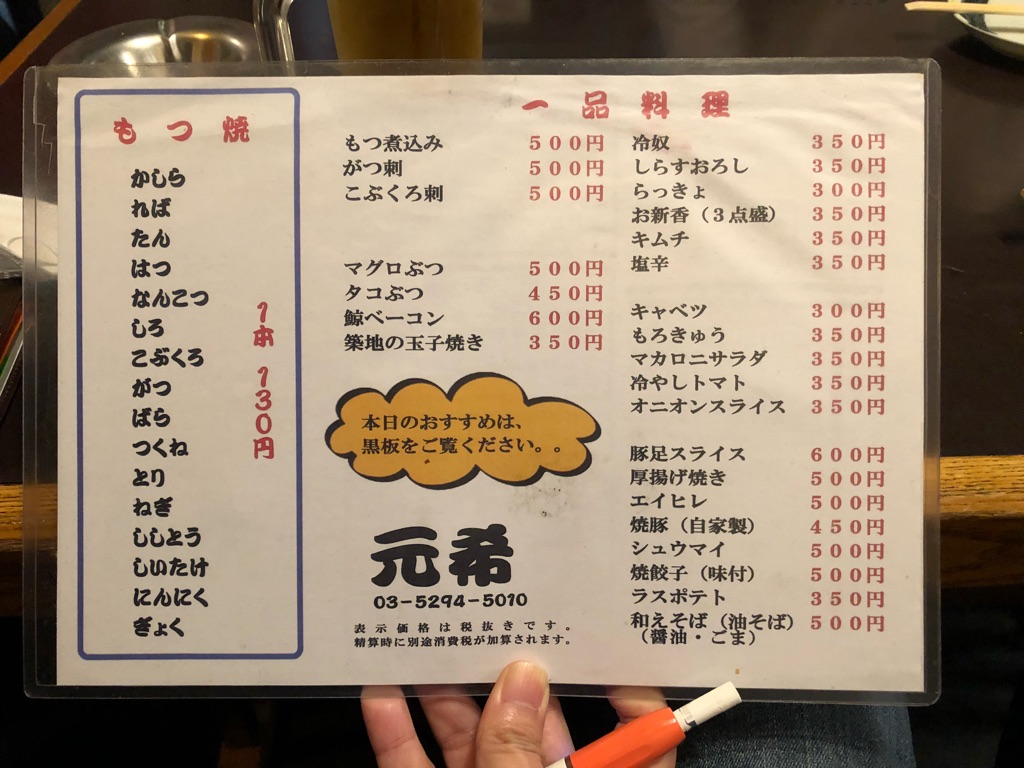 もつ焼
かしら
ればㅤ
たん
はつ
なんこつ
しろ
こぶくろ
がつ
ばら
つくね
とり
ねぎ
ししとう
しいたけ
にんにく
ぎょく
1本 130円
一品料理
もつ煮込み 500円
がつ刺 500円
こぶくろ刺 500円
マグロぶつ 500円
タコぶつ 450円
鯨ベーコン 600円
築地の玉子焼き 350円
本日のおすすめは、
黒板をご覧ください。。
元希
03-5294-5010
表示価格は税抜きです。
精算時に別途消費税が加算されます。
冷奴 350円
しらすおろし 350円
らっきょ 300円
お新香(3点盛) 350円
キムチ 350円
塩辛 350円
キャベツ 300円
もろきゅう 350円
マカロニサラダ 350円
冷やしトマト 350円
オニオンスライス 350円
豚足スライス 600円
厚揚げ焼き 500円
エイヒレ 500円
焼豚(自家製) 450円
シュウマイ 500円
焼餃子(味付) 500円
ラスポテト 350円
和えそば(油そば) 500円
(醤油・ごま)